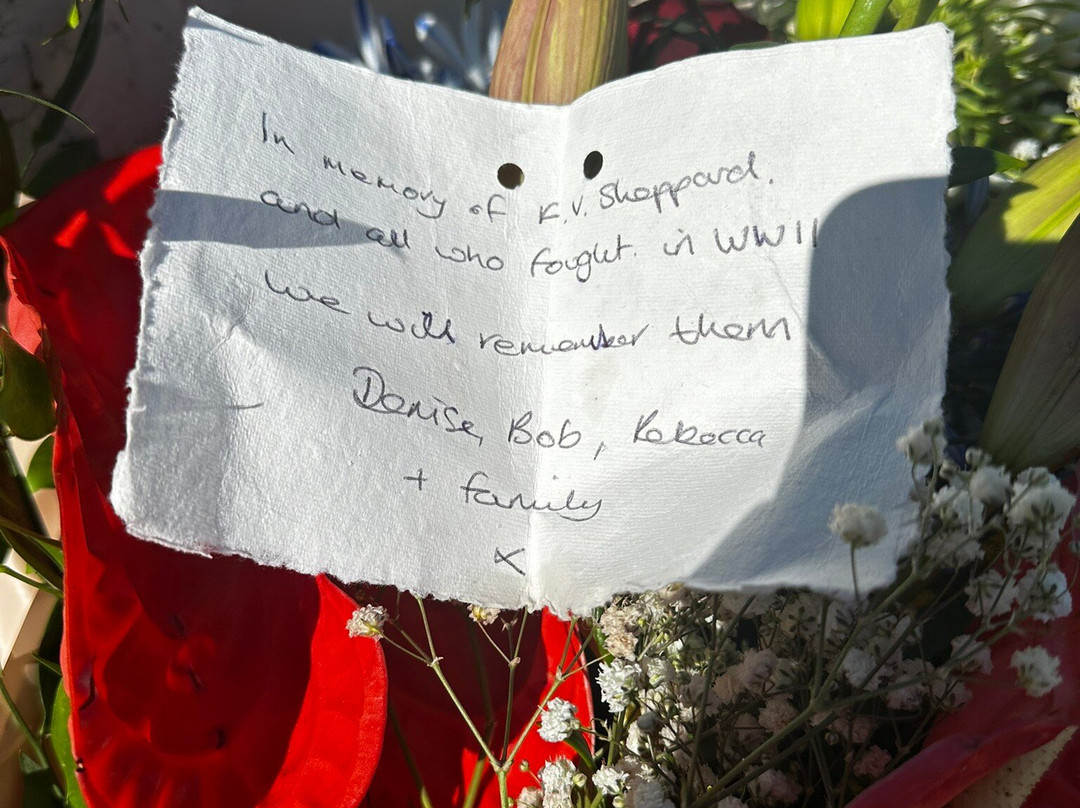 In memory of K.V. Sheppard.
and all who fought. in WWII
We will remember them
Denise, Bob, Rebecca
+ family
x